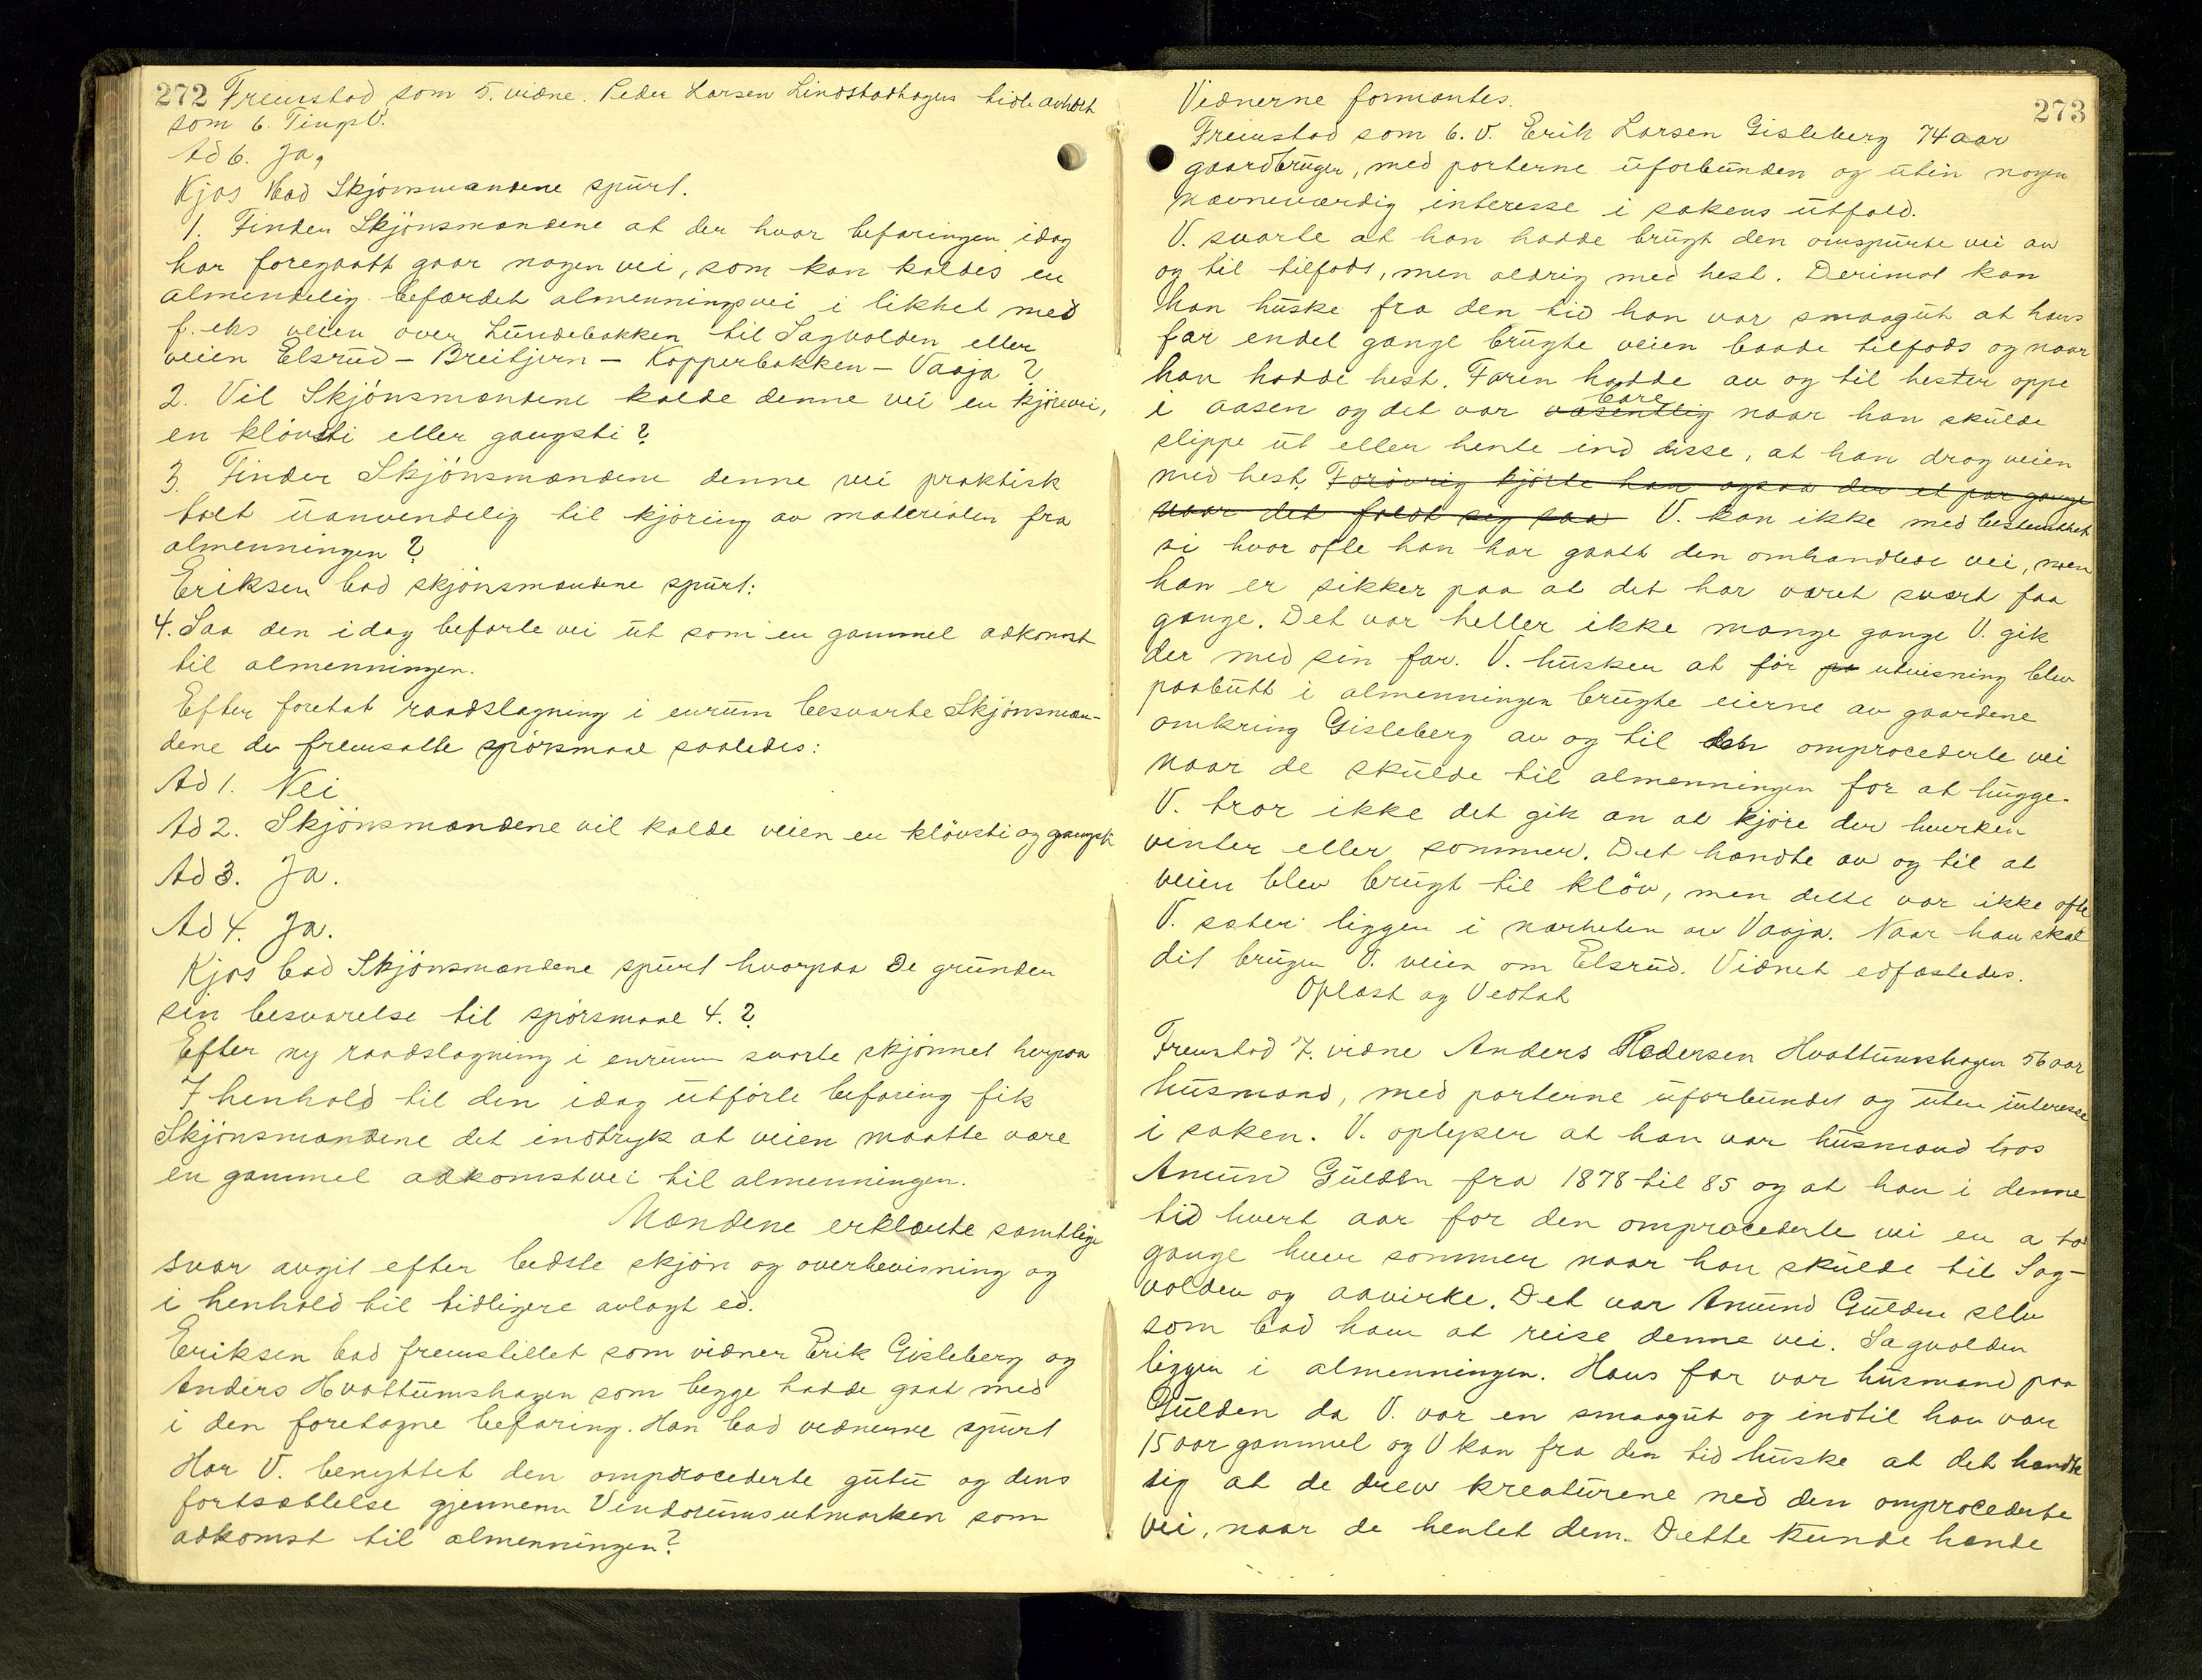 272 Fremstod som 5. vidne. Peder Larsen Lindstadhagen tidl. avhørt
som 6. TingsV.
Ad 6. Ja,
Kjos bad Skjönsmændene spurt.
1. Finder Skjönsmændene at der hvor befaringen idag
har foregaatt gaar nogen vei, som kan kaldes en
almindelig befærdet almenningsvei i likhet med
f.eks veien over Lundebakken til Sagvolden eller
veien Elsrud - Breitjern - Kopperbakken - Vaaja ?
2. Vil Skjönsmændene kalde denne vei en kjörevei,
en klövsti eller gangsti ?
3. Finder Skjönsmændene denne vei praktisk
talt uanvendelig til kjöring av materialer fra
almenningen ?
Eriksen bad skjönsmændene spurt:
4. Saa den idag befarte vei ut som en gammel adkomst
til almenningen.
Efter foretat raadslagning i enrum besvarte Skjönsmæn-
dene de fremsatte spörsmaal saaledes:
Ad 1. Nei
Ad 2. Skjönsmændene vil kalde veien en klövsti og gangsti
Ad 3. Ja.
Ad 4. Ja.
Kjos bad Skjönsmændene spurt hvorpaa de grunder
sin besvarelse til spörsmaal 4. ?
Efter ny raadslagning i enrum svarte skjönnet herpaa
I henhold til den idag utförte befaring fik
Skjönsmændene det indtryk at veien maatte være
en gammel adkomstvei til almenningen.
Mændene erklærte samtlige
svar avgit efter bedste skjön og overbevisning og
i henhold til tidligere avlagt ed.
Eriksen bad fremstillet som vidner Erik Gisleberg og
Anders Hvattumshagen som begge hadde gaat med
i den foretagne befaring. Han bad vidnerne spurt
Har V. benyttet den omprocederte gutu og dens
fortsættelse gjennem Vindorumsutmarken som
adkomst til almenningen?
273
Vidnerne formantes.
Fremstod som 6. V. Erik Larsen Gisleberg 74 aar
gaardbruger, med parterne uforbunden og uten nogen
nævneværdig interesse i sakens utfald.
V. svarte at han hadde brugt den omspurte vei av
og til tilfods, men aldrig med hest. Derimot kan
han huske fra den tid han var smaagut at hans
far endel gange brugte veien baade tilfods og naar
han hadde hest. Faren hadde av og til hester oppe
i aasen og det var væsentlig bare naar han skulde
slippe ut eller hente ind disse, at han drog veien
med hest. Forövrig kjörte han ogsaa der et par gange
naar det faldt sig saa V. kan ikke med bestemthet
si hvor ofte han har gaatt den omhandlede vei, men
han er sikker paa at det har været svært faa
gange. Det var heller ikke mange gange V. gik
der med sin far. V. husker at för pa utvisning blev
paabutt i almenningen brugte eierne av gaardene
omkring Gisleberg av og til den omprocederte vei
naar de skulde til almenningen for at hugge.
V. tror ikke det gik an at kjöre der hverken
vinter eller sommer. Det hændte av og til at
veien blev brugt til klöv, men dette var ikke ofte
V. sæter ligger i nærheten av Vaaja. Naar han skal
dit bruger V. veien om Elsrud. Vidnet edfæstedes.
Oplæst og Vedtat
Fremstod 7. vidne Anders Pedersen Hvattumshagen 56 aar
husmand, med parterne uforbundet og uten interesse
i saken. V. oplyser at han var husmand hos
Amund Gulden fra 1878 til 85 og at han i denne
tid hvert aar for den omprocederte vei en a to
gange hver sommer naar han skulde til Sag-
volden og aavirke. Det var Amund Gulden selv
som bad ham at reise denne vei. Sagvolden
ligger i almenningen. Hans far var husmand paa
Gulden da V. var en smaagut og indtil han var
15 aar gammel og V kan fra den tid huske at det hændte
sig at de drev kreaturene ned den omprocederte
vei, naar de hentet dem. Dette kunde hænde